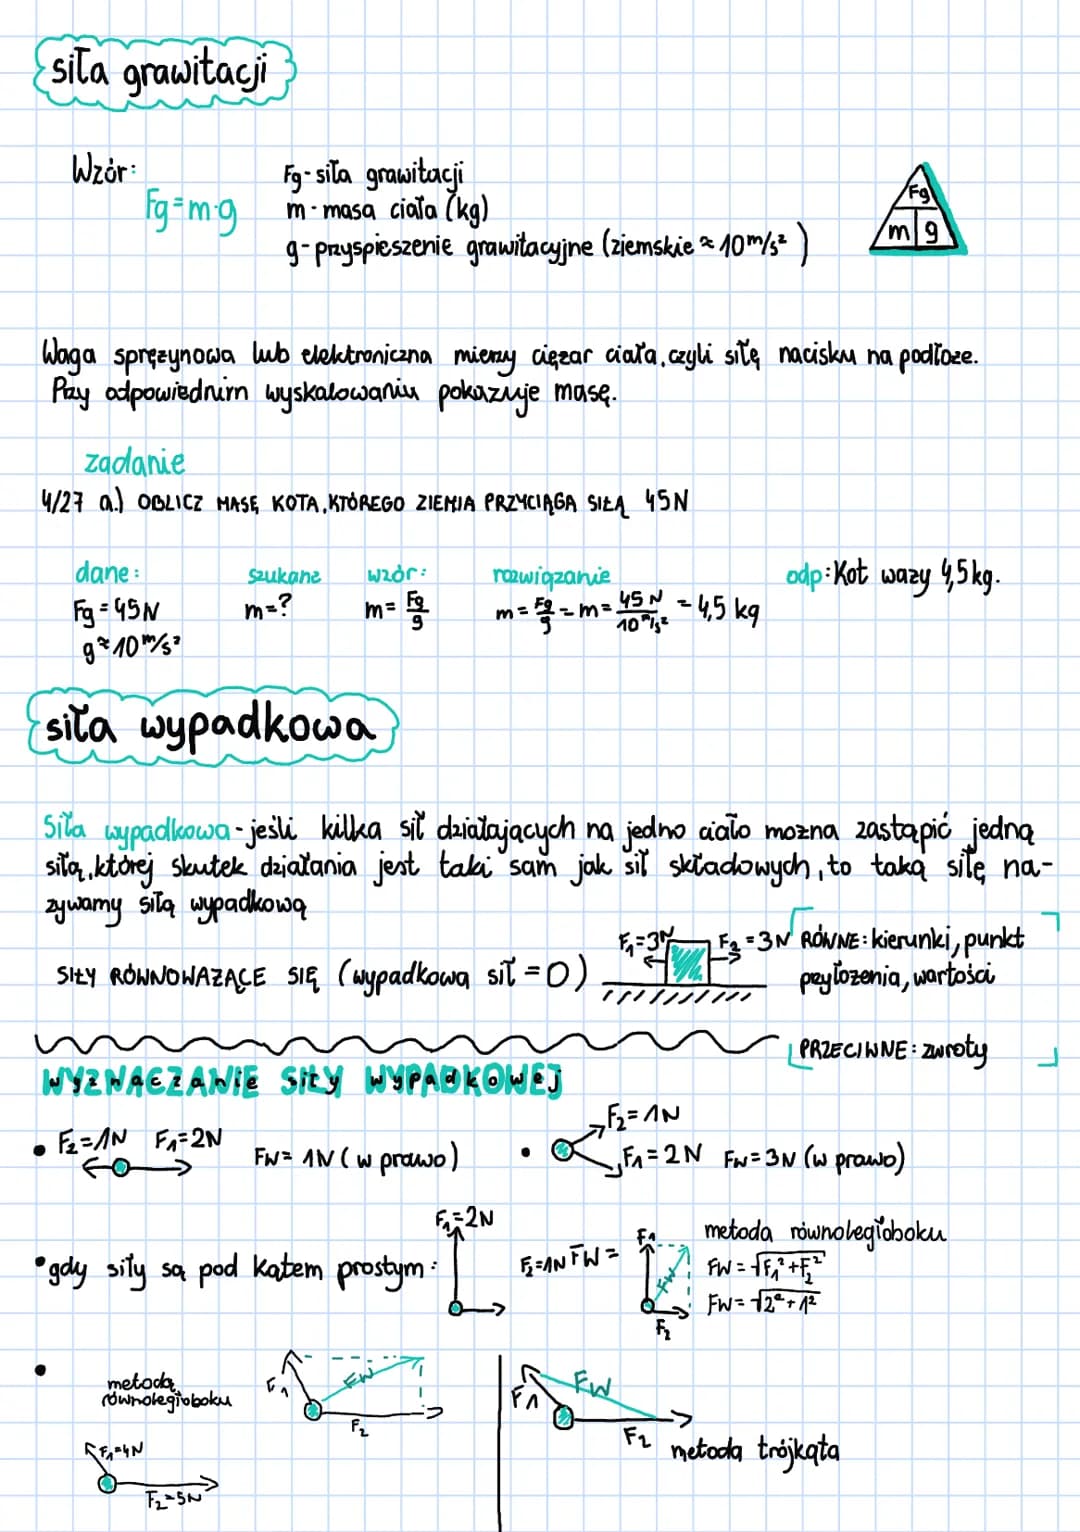 siła grawitacji
Wzór:
Fg=m·g
Fg - siła grawitacji
m - masa ciała (kg)
g - przyspieszenie grawitacyjne (ziemskie ≈ 10 m/s²)
Fg
m g
Waga sprężynowa lub elektroniczna mierzy ciężar ciała, czyli siłę nacisku na podłoże.
Przy odpowiednim wyskalowaniu pokazuje masę.
zadanie
4/27 a.) OBLICZ MASĘ KOTA, KTÓREGO ZIEMIA PRZYCIĄGA SIŁĄ 45N
dane: szukane wzór: rozwiązanie odp: Kot waży 4,5 kg.
Fg = 45N m=? m= Fg/g m = Fg/g = m = 45 N/10 m/s² = 4,5 kg
g ≈ 10 m/s²
siła wypadkowa
Siła wypadkowa - jeśli kilka sił działających na jedno ciało można zastąpić jedną
siłą, której skutek działania jest taki sam jak sił składowych, to taką siłę na-
zywamy siłą wypadkową
F₁=3N F₂=3N RÓWNE: kierunki, punkt
SIŁY RÓWNOWAŻĄCE SIĘ (wypadkowa sił = 0) przyłożenia, wartości
PRZECIWNE: zwroty
WYZNACZANIE SIŁY WYPADKOWEJ
• F₂=1N F₁=2N FW= 1N (w prawo)
• F₂=1N F₁=2N FW=3N (w prawo)
• gdy siły są pod kątem prostym: F₁=2N F₂=1N FW= F₁ FW F₂
metoda równoległoboku
FW = √F₁²+F₂²
FW= √2²+1²
•
metodą
równoległoboku
F₁ FW F₂
F₁=4N
F₂=5N
F₁ FW F₂
metodą trójkąta